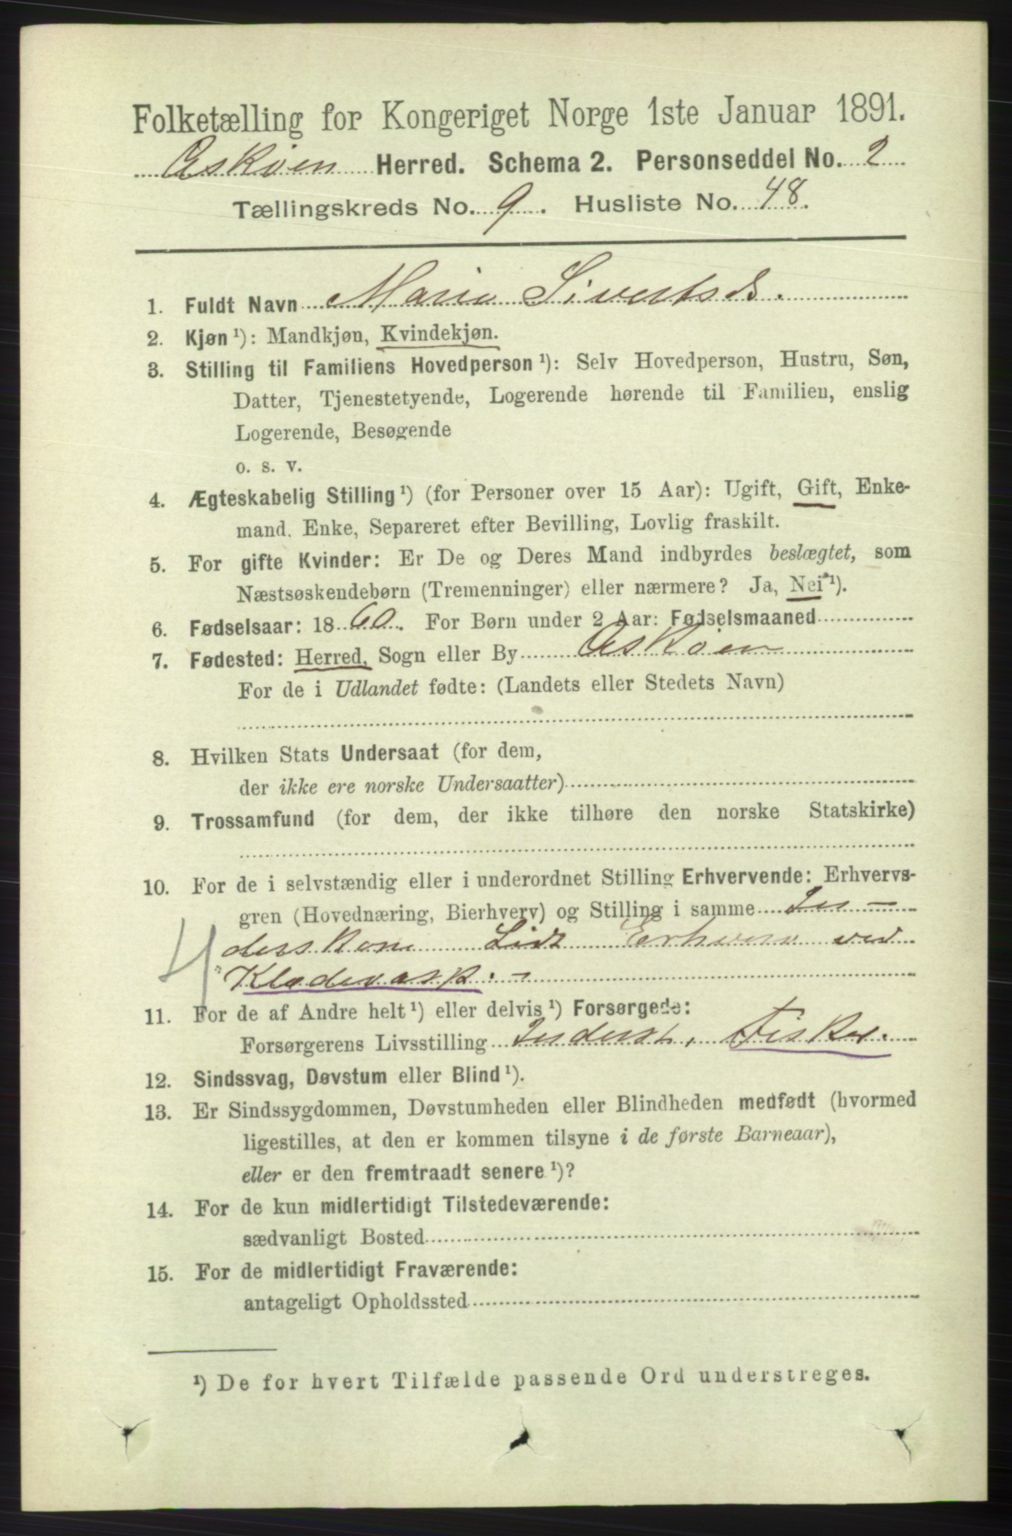 Folketælling for Kongeriget Norge 1ste Januar 1891.
Askøen Herred. Schema 2. Personseddel No. 2
Tællingskreds No. 9. Husliste No. 48.
1. Fuldt Navn Marie Sivertsd.
2. Kjøn ¹): Mandkjøn, Kvindekjøn.
3. Stilling til Familiens Hovedperson ¹): Selv Hovedperson, Hustru, Søn,
Datter, Tjenestetyende, Logerende hørende til Familien, enslig
Logerende, Besøgende
o. s. v.
4. Ægteskabelig Stilling ¹) (for Personer over 15 Aar): Ugift, Gift, Enke-
mand. Enke, Separeret efter Bevilling, Lovlig fraskilt.
5. For gifte Kvinder: Er De og Deres Mand indbyrdes beslægtet, som
Næstsøskendebørn (Tremenninger) eller nærmere? Ja, Nei ¹).
6. Fødselsaar: 1860. For Børn under 2 Aar: Fødselsmaaned
7. Fødested: Herred, Sogn eller By Askøen
For de i Udlandet fødte: (Landets eller Stedets Navn)
8. Hvilken Stats Undersaat (for dem,
der ikke ere norske Undersaatter)
9. Trossamfund (for dem, der ikke tilhøre den norske Statskirke)
10. For de i selvstændig eller i underordnet Stilling Erhvervende: Erhvervs-
gren (Hovednæring, Bierhverv) og Stilling i samme In-
derstkone Lidt Erhverv ved
Klædevask.
11. For de af Andre helt ¹) eller delvis ¹) Forsørgede:
Forsørgerens Livsstilling Inderst, Fisker.
12. Sindssvag, Døvstum eller Blind ¹).
13. Er Sindssygdommen, Døvstumheden eller Blindheden medfødt (hvormed
ligestilles, at den er kommen tilsyne i de første Barneaar),
eller er den fremtraadt senere ¹)?
14. For de kun midlertidigt Tilstedeværende:
sædvanligt Bosted
15. For de midlertidigt Fraværende:
antageligt Opholdssted
¹) De for hvert Tilfælde passende Ord understreges.